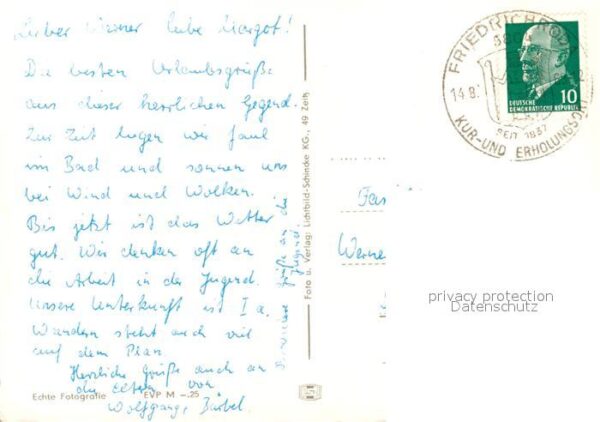 Lieber Werner liebe Margot!
Die besten Urlaubsgrüße
aus dieser herrlichen Gegend.
Zur Zeit liegen wir faul
im Bad und sonnen uns
bei Wind und Wolken.
Bis jetzt ist das Wetter
gut. Wir denken oft an
die Arbeit in der Jugend.
Unsere Unterkunft ist I a.
Wandern steht auch viel
auf dem Plan.
Herzliche Grüße auch an
die Eltern von
Wolfgang, Bärbel.
Grüße an die
Jugend.
Echte Fotografie
EVP M -.25
Foto u. Verlag: Lichtbild-Schincke KG., 49 Zeitz
FRIEDRICHRODA
14.8.
SEIT 1837
KUR-UND ERHOLUNGSORT
10
DEUTSCHE
DEMOKRATISCHE REPUBLIK
Fa
Werne
privacy protection
Datenschutz